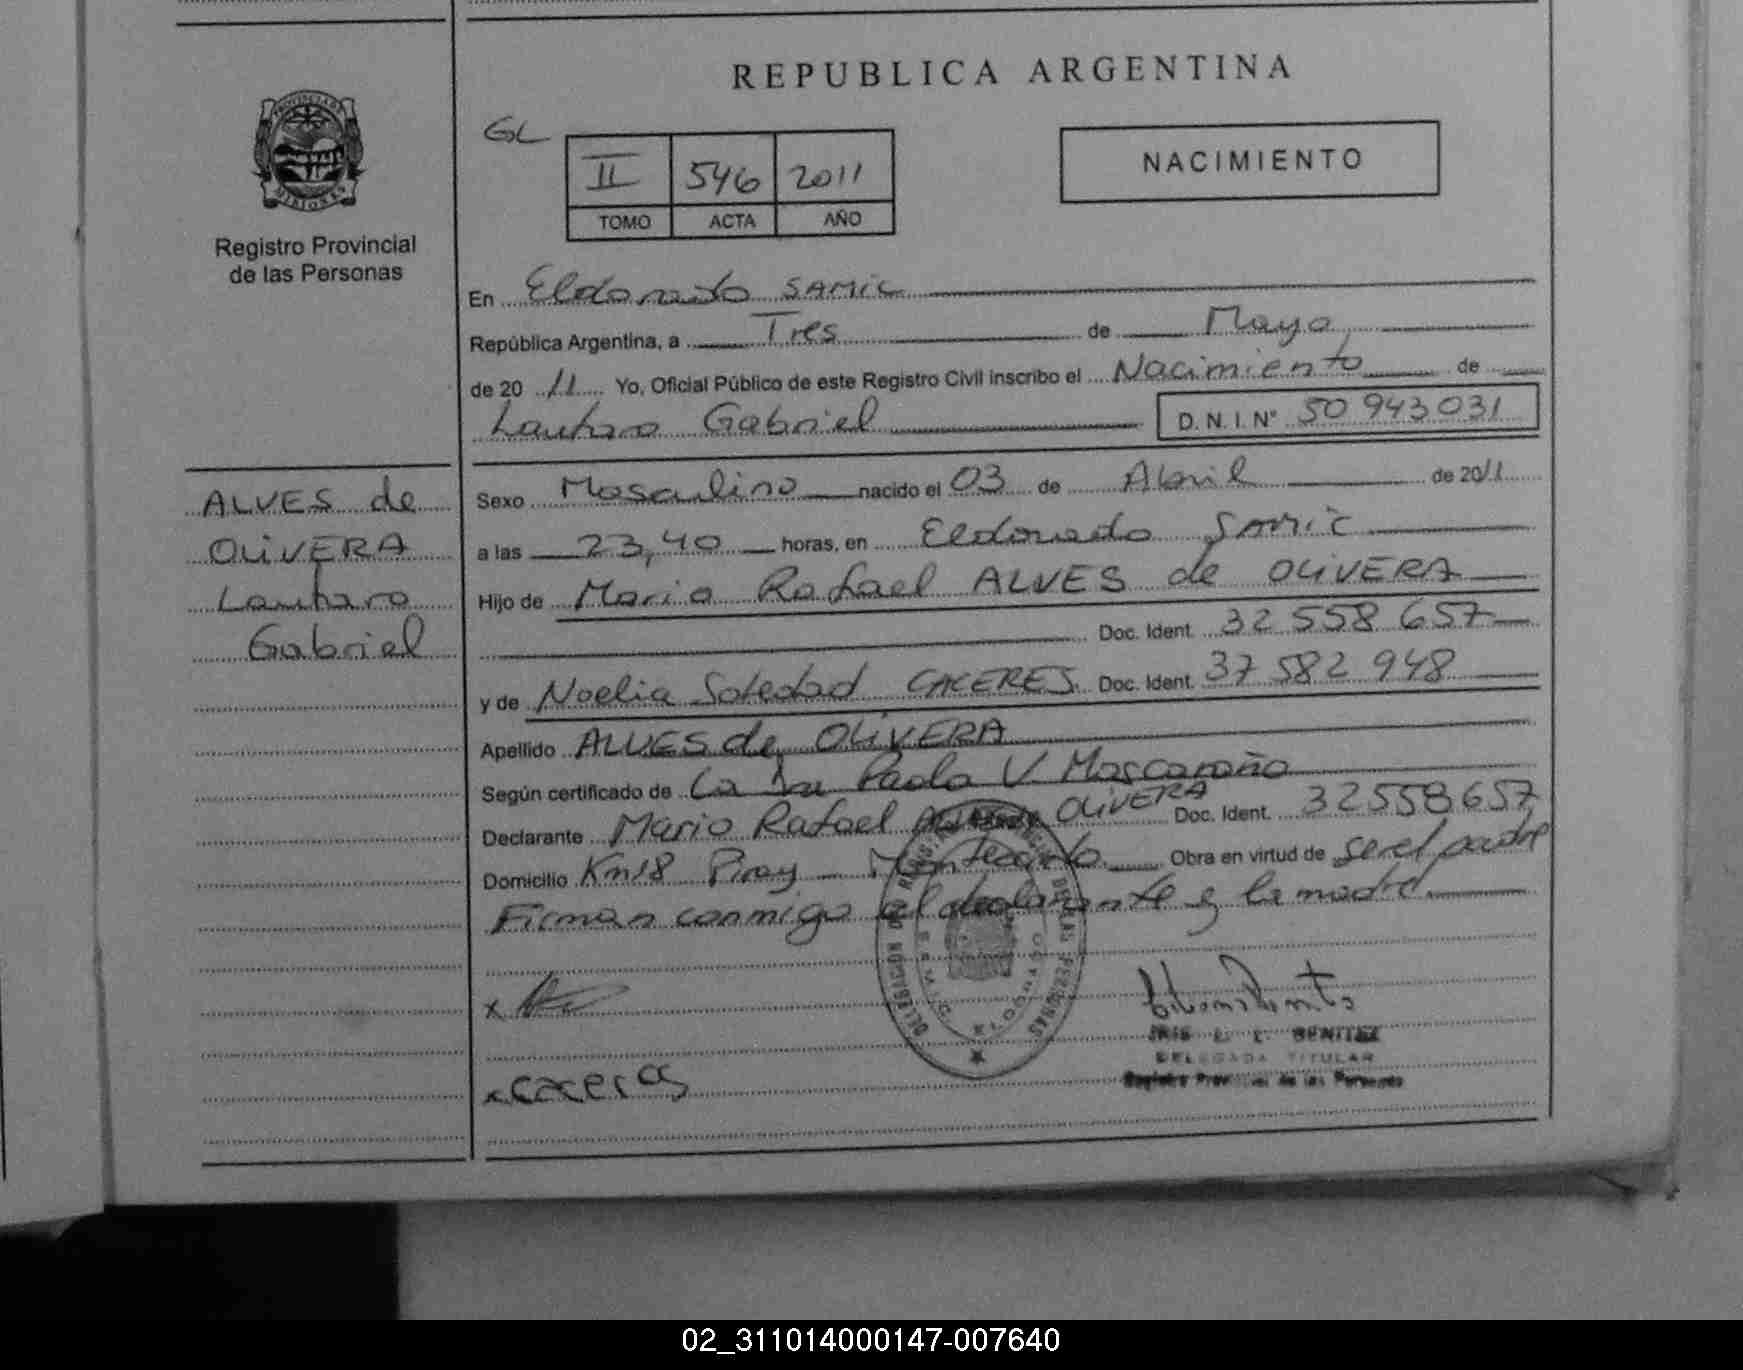 REPUBLICA ARGENTINA
GL
II 546 2011
TOMO ACTA AÑO
NACIMIENTO
PROVINCIA DE MISIONES
Registro Provincial
de las Personas
En Eldorado SAMIC
República Argentina, a Tres de Mayo
de 20 11 Yo, Oficial Público de este Registro Civil inscribo el Nacimiento de
Lautaro Gabriel D. N. I. N° 50 943 031
ALVES de
OLIVERA
Lautaro
Gabriel
Sexo Masculino nacido el 03 de Abril de 2011
a las 23,40 horas, en Eldorado SAMIC
Hijo de Mario Rafael ALVES de OLIVERA
Doc. Ident. 32 558 657
y de Noelia Soledad CACERES Doc. Ident. 37 582 948
Apellido ALVES de OLIVERA
Según certificado de La Dra Paola V Mascaroño
Declarante Mario Rafael OLIVERA Doc. Ident. 32558657
Domicilio Km18 Piray - Montecarlo Obra en virtud de ser el padre
Firman conmigo el declarante y la madre
x
x Caceres
DELEGACION REGISTRO DE LAS PERSONAS
ELDORADO
BENITEZ
DELEGADA TITULAR
Registro Provincial de las Personas
02_311014000147-007640